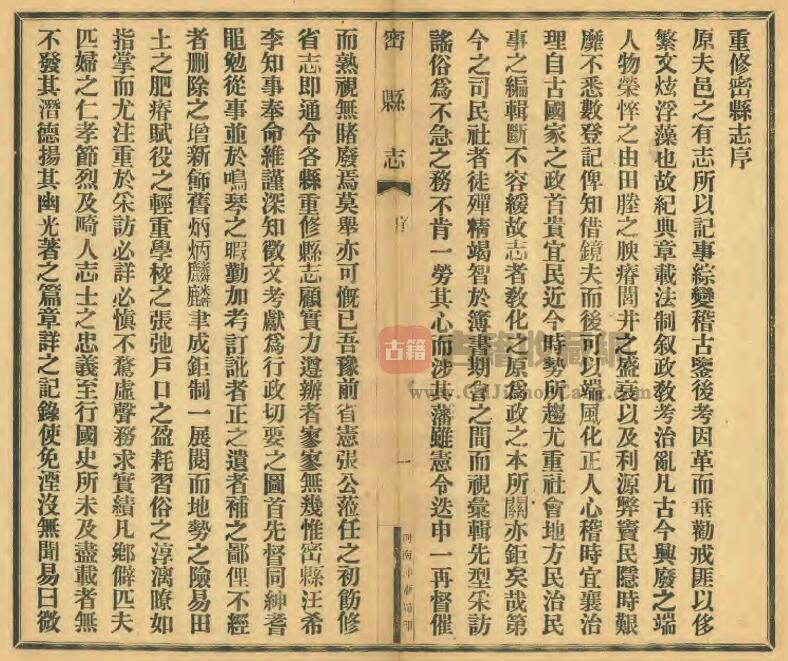 重修密縣志序
原夫邑之有志所以記事綜變稽古鑒後考因革而垂勸戒匪以侈
繁文炫浮藻也故紀典章載法制叙政敎考治亂凡古今興廢之端
人物榮悴之由田塍之腴瘠閭井之盛衰以及利源弊竇民隱時艱
靡不悉數登記俾知借鏡夫而後可以端風化正人心稽時宜襄治
理自古國家之政首貴宜民近今時勢所趨尤重社會地方民治民
事之編輯斷不容緩故志者敎化之原爲政之本所關亦鉅矣哉第
今之司民社者徒殫精竭智於簿書期會之間而視彙輯先型采訪
謠俗爲不急之務不肯一勞其心而涉其藩雖憲令迭申一再督催
密縣志
序
一
而熟視無睹廢焉莫舉亦可慨已吾豫前省憲張公蒞任之初飭修
省志即通令各縣重修縣志顧實力遵辦者寥寥無幾惟密縣汪希
李知事奉命維謹深知徵文考獻爲行政切要之圖首先督同紳耆
黽勉從事並於鳴琴之暇勤加考訂訛者正之遺者補之鄙俚不經
者刪除之增新飾舊炳炳麟麟聿成鉅制一展閱而地勢之險易田
土之肥瘠賦役之輕重學校之張弛戶口之盈耗習俗之淳漓瞭如
指掌而尤注重於采訪必詳必愼不騖虛聲務求實績凡鄉僻匹夫
匹婦之仁孝節烈及畸人志士之忠義至行國史所未及盡載者無
不發其潛德揚其幽光著之篇章詳之記錄使免湮沒無聞易曰微
古籍